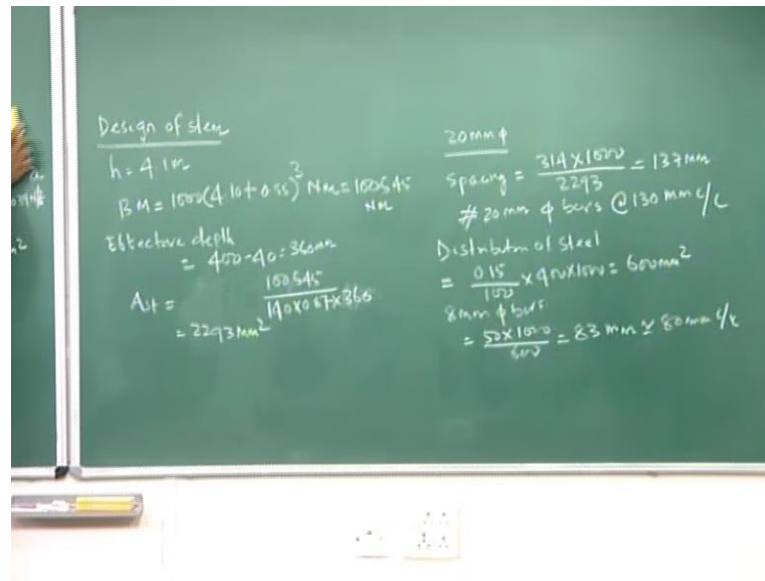 Design of stem
h = 4.1m
BM = 1000(4.10+0.55)³ Nm = 100545
Nm
Effective depth
= 400-40 = 360mm
Ast = 100545
140×0.87×360
= 2293mm²
20mm φ
Spacing = 314×1000 / 2293 = 137mm
# 20mm φ bars @ 130 mm c/c
Distribution of steel
= 0.15/100 × 400×1000 = 600mm²
8mm φ bars
= 50×1000 / 600 = 83 mm ≃ 80mm c/c